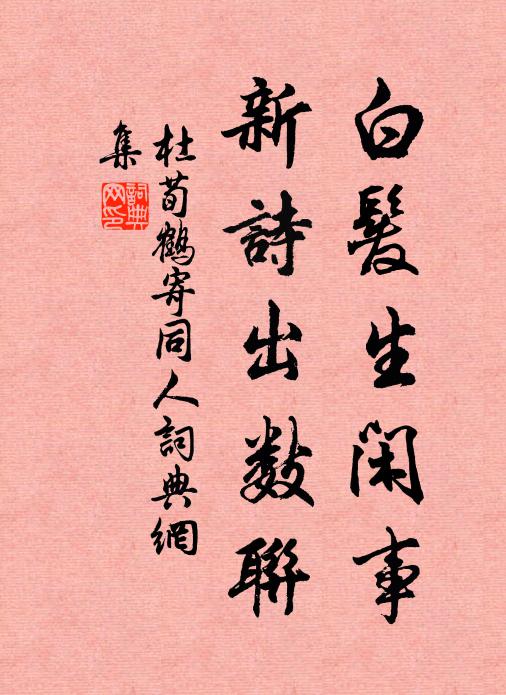 白髮生閑事
新詩出數聯
杜荀鶴寄同人詞典網
集
詞典网印